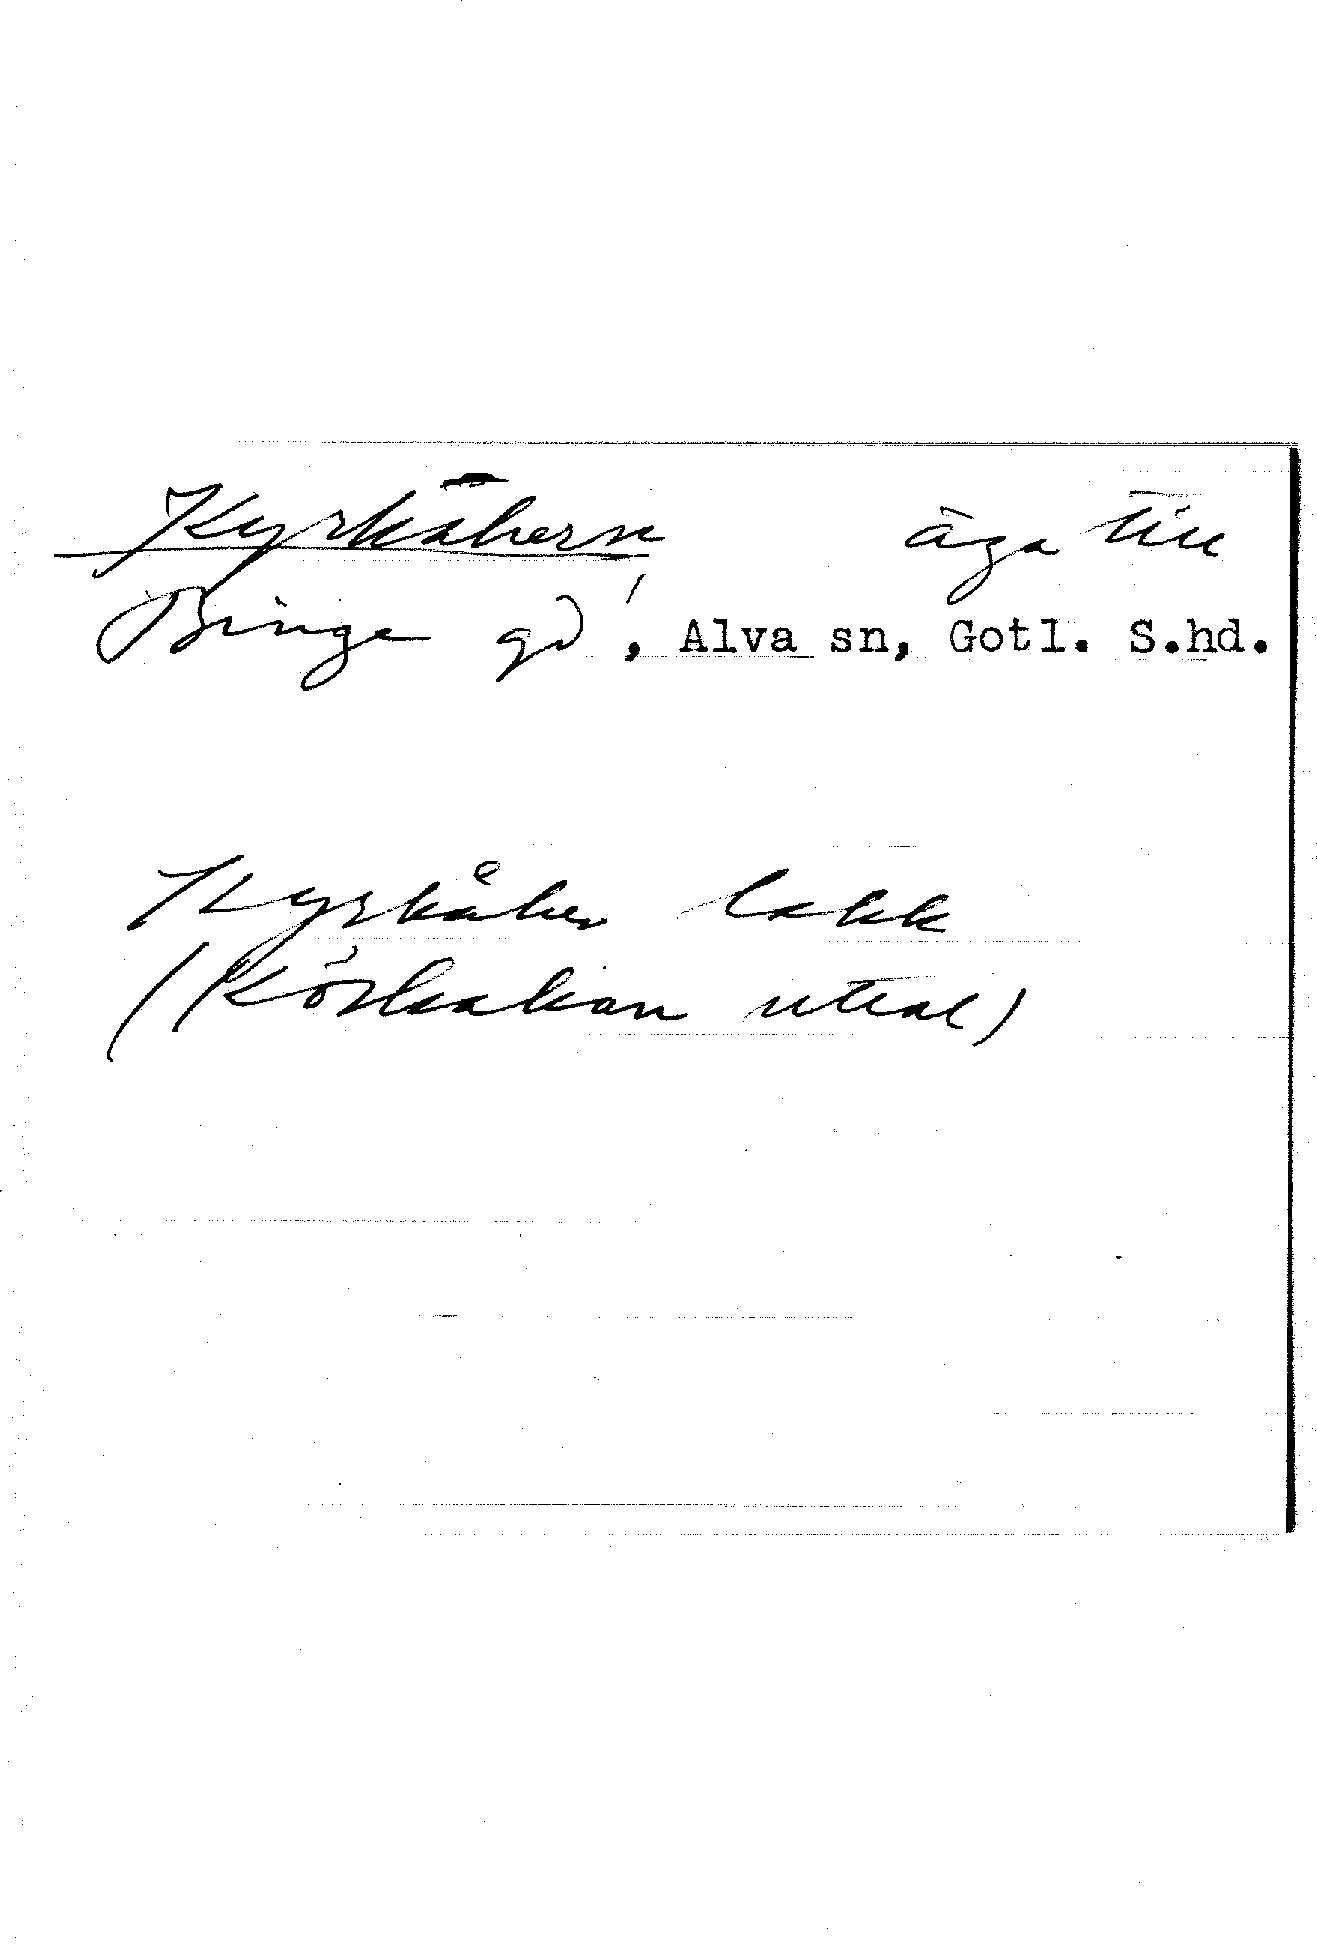 Kyrkåkern äga till
Binge gd, Alva sn, Gotl. S.hd.
Kyrkåker lakk
(Körkakan uttal)